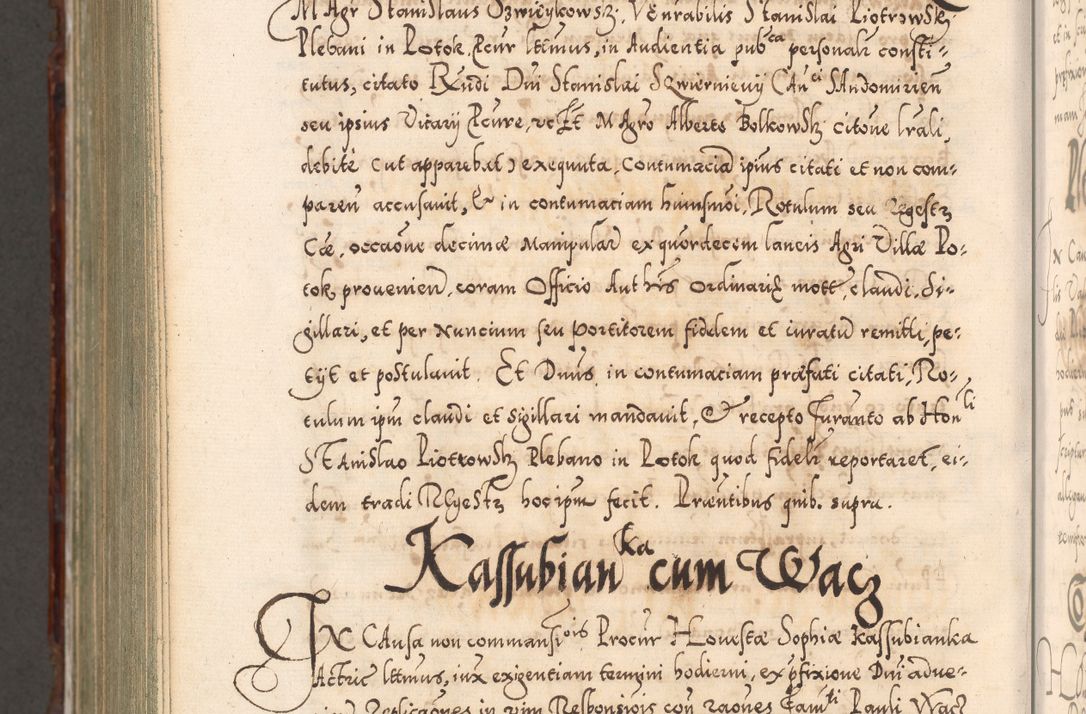 MAgr Stanislaus Szwieykowsz. Venrabilis Stanislai Piotrowsk
Plebani in Potok, Pcur lttmus, in Audientia pub^ca personalr consti-
tutus, citato Rndi Dni Stanislai Szwierniewij Can^ci SAndomirien
seu ipsius Vicarij Pcure, MAgro Alberto Bolkowsk citoue lrali,
debite (ut apparebat) exequuta, Contumaciã ipius citati et non com-
paren accusauit, & in contumaciam huiusmoi, Rotulum seu Regestz
Cæ, occaone decimæ Manipular ex quordecem laneis Agri Villæ Po-
tok, prouenien, coram Officio Aut his Ordinariæ mott, claudi, si-
gillari, et per Nuncium seu portitorem fidelem et iuratu remitti, pe-
tijt et postulauit. Et Dnus, in contumaciam præfati citati, Ro-
tulum ipm claudi et sigillari mandauit, & recepto Iuranto ab Hon^li
STAnislao Piotrowsk Plebano in Potok quod fidelr reportaret, ei-
dem tradi REgestz hoc ipm fecit. Præntibus quib. supra.
Kassubian^ka cum Wacz
IN CAusa non commansi^ois Procur Honestæ Sophiæ Kassubianka
Actric lttmus, iux exigentiam termini hodierni, ex pfixione Dni adue-
Replicaones in vim Responsiois con raones Fam^li Pauli Wacz